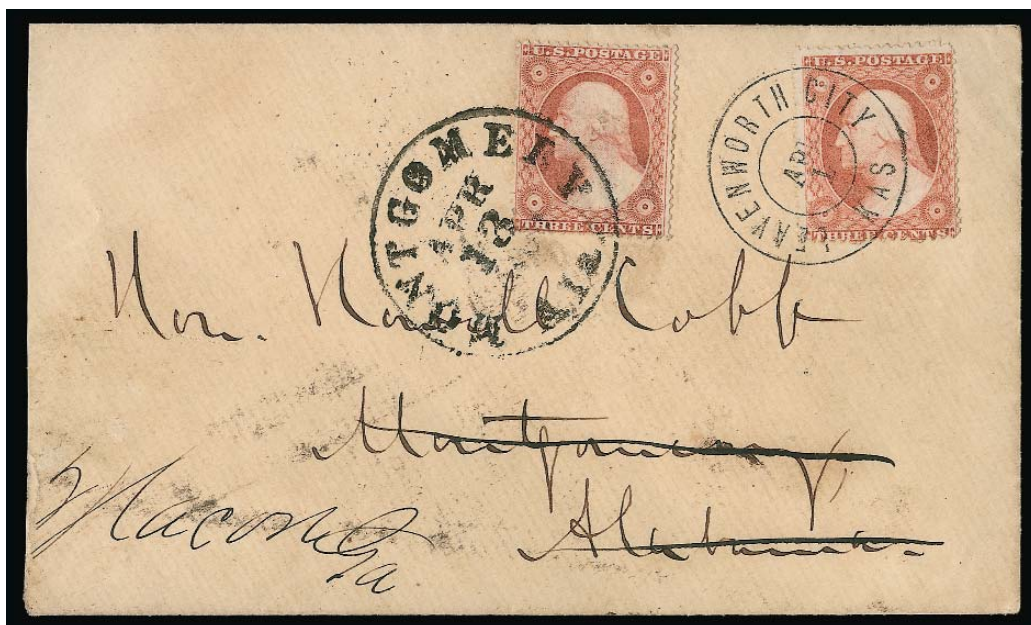 U.S. POSTAGE
THREE CENTS
U.S. POSTAGE
THREE CENTS
MONTGOMERY Ala
APR
13
LEAVENWORTH CITY KAS
APR
Hon. Howell Cobb
Montgomery,
Alabama.
Macon Ga